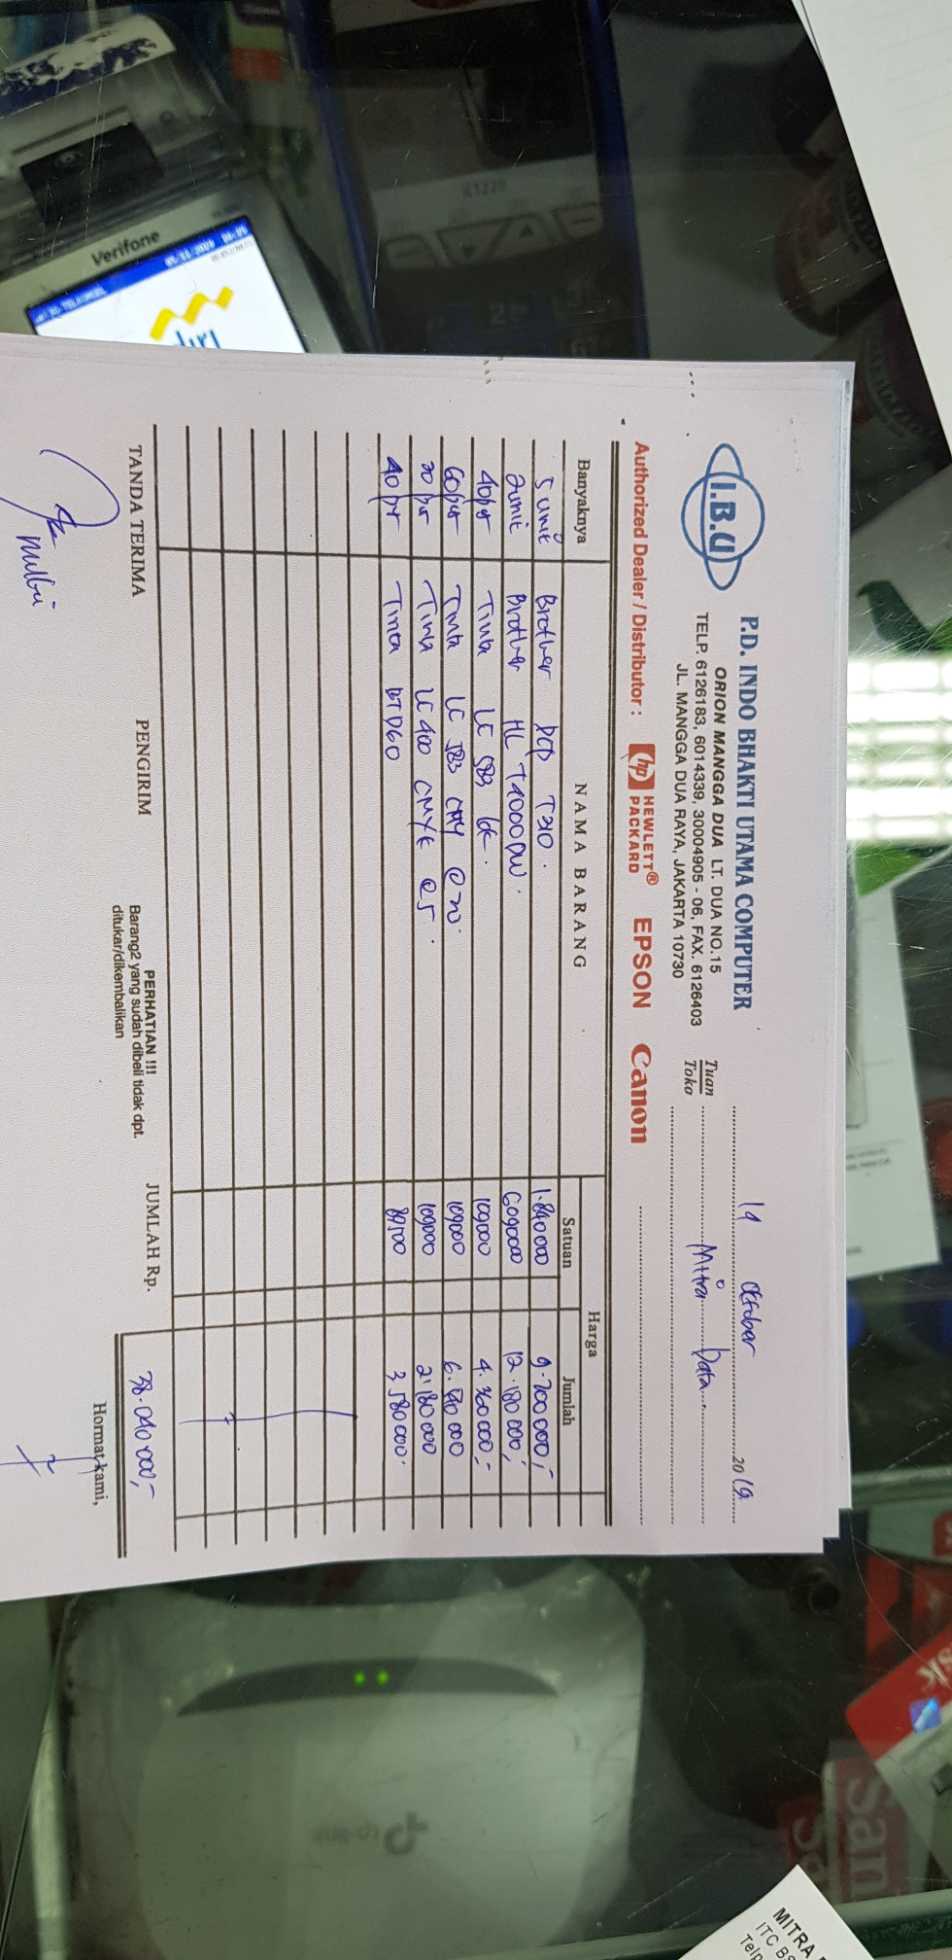 I.B.U
P.D. INDO BHAKTI UTAMA COMPUTER
ORION MANGGA DUA LT. DUA NO.15
TELP. 6126183, 6014339, 30004905 - 06, FAX. 6126403
JL. MANGGA DUA RAYA, JAKARTA 10730
14 Oktober 2019
Tuan
Toko
Mitra Data
Authorized Dealer / Distributor : hp HEWLETT® PACKARD EPSON Canon
Banyaknya NAMA BARANG Harga
Satuan Jumlah
5 unit Brother DCP T310. 1.840000 9.200000,-
2 unit Brother HL T4000DW. 6090000 12.180000,-
40 pcs Tinta LC 583 BK. 109000 4.360000,-
60 pcs Tinta LC 583 CMY @20. 109000 6.540000
20 pcs Tinta LC 400 CMYK @5. 109000 2.180000
40 pcs Tinta BTD60 89500 3.580000.
TANDA TERIMA PENGIRIM
PERHATIAN !!!
Barang2 yang sudah dibeli tidak dpt.
ditukar/dikembalikan
JUMLAH Rp. 38.040000,-
Hormat kami,
Verifone
tp-link
MITRA
ITC BS
Telp